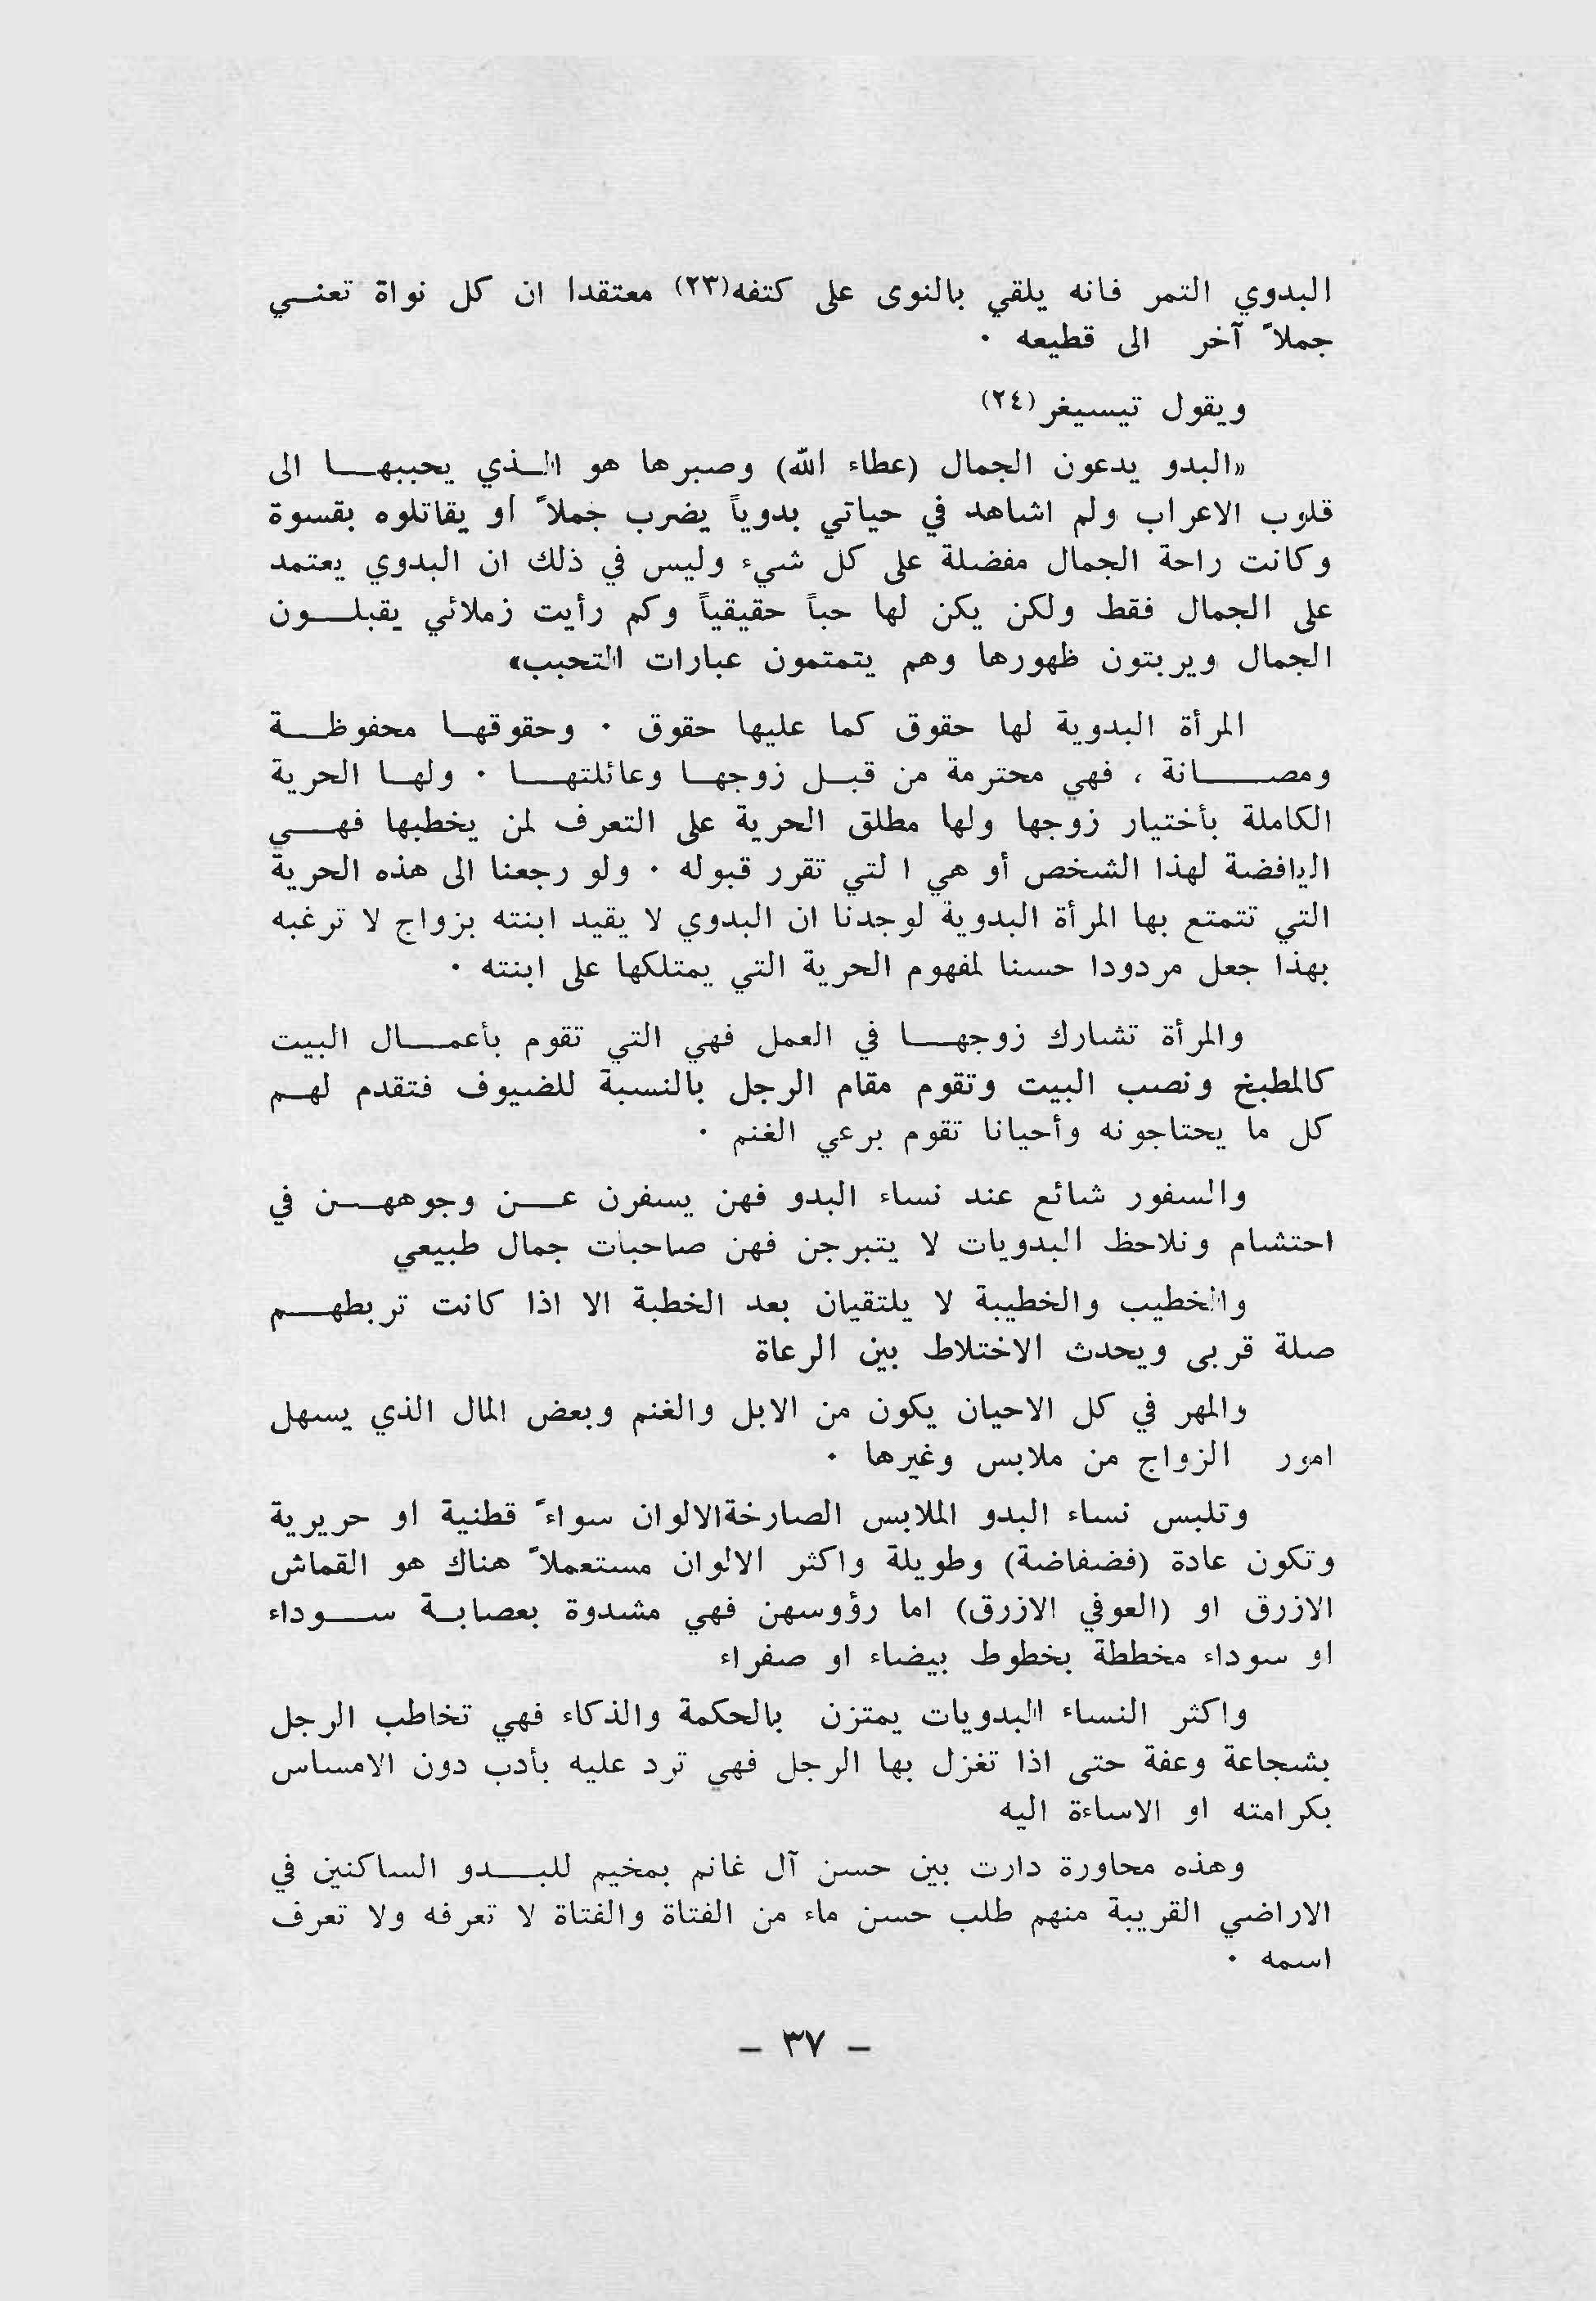 البدوي التمر فانه يلقي بالنوى على كتفه(٢٣) معتقدا ان كل نواة تعني
جملاً آخر الى قطيعه ٠
ويقول تيسيغر (٢٤)
«البدو يدعون الجمال (عطاء الله) وصبرها هو الذي يحببها الى
قلوب الاعراب ولم اشاهد في حياتي بدوياً يضرب جملاً أو يقاتلوه بقسوة
وكانت راحة الجمال مفضلة على كل شيء وليس في ذلك ان البدوي يعتمد
على الجمال فقط ولكن يكن لها حباً حقيقياً وكم رأيت زملائي يقبلون
الجمال ويربتون ظهورها وهم يتمتمون عبارات التحبب»
المرأة البدوية لها حقوق كما عليها حقوق ٠ وحقوقها محفوظة
ومصانة ، فهي محترمة من قبل زوجها وعائلتها ٠ ولها الحرية
الكاملة بأختيار زوجها ولها مطلق الحرية على التعرف لمن يخطبها فهي
الرافضة لهذا الشخص أو هي ا لتي تقرر قبوله ٠ ولو رجعنا الى هذه الحرية
التي تتمتع بها المرأة البدوية لوجدنا ان البدوي لا يقيد ابنته بزواج لا ترغبه
بهذا جعل مردودا حسنا لمفهوم الحرية التي يمتلكها على ابنته ٠
والمرأة تشارك زوجها في العمل فهي التي تقوم بأعمال البيت
كالمطبخ ونصب البيت وتقوم مقام الرجل بالنسبة للضيوف فتقدم لهم
كل ما يحتاجونه وأحيانا تقوم برعي الغنم ٠
والسفور شائع عند نساء البدو فهن يسفرن عن وجوههن في
احتشام ونلاحظ البدويات لا يتبرجن فهن صاحبات جمال طبيعي
والخطيب والخطيبة لا يلتقيان بعد الخطبة الا اذا كانت تربطهم
صلة قربى ويحدث الاختلاط بين الرعاة
والمهر في كل الاحيان يكون من الابل والغنم وبعض المال الذي يسهل
امور الزواج من ملابس وغيرها ٠
وتلبس نساء البدو الملابس الصارخةالالوان سواءً قطنية او حريرية
وتكون عادة (فضفاضة) وطويلة واكثر الالوان مستعملاً هناك هو القماش
الازرق او (العوفي الازرق) اما رؤوسهن فهي مشدوة بعصابة سوداء
او سوداء مخططة بخطوط بيضاء او صفراء
واكثر النساء البدويات يمتزن بالحكمة والذكاء فهي تخاطب الرجل
بشجاعة وعفة حتى اذا تغزل بها الرجل فهي ترد عليه بأدب دون الامساس
بكرامته او الاساءة اليه
وهذه محاورة دارت بين حسن آل غانم بمخيم للبدو الساكنين في
الاراضي القريبة منهم طلب حسن ماء من الفتاة والفتاة لا تعرفه ولا تعرف
اسمه ٠
– ٣٧ –